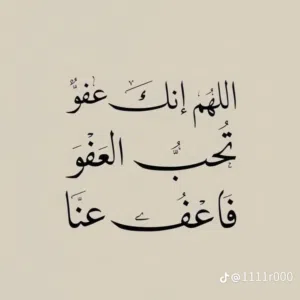 اللهُم إنك عفوٌّ
تُحبُّ العَفْوَ
فَاعْفُ عنَّا
@1111r000